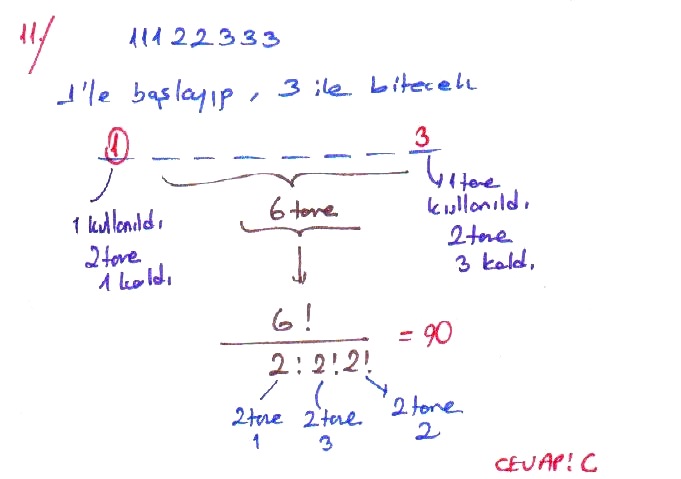 11/ 11122333
1'le başlayıp, 3 ile bitecek
1 _ _ _ _ _ _ 3
6 tane
1 kullanıldı
2 tane
1 kaldı
1 tane
kullanıldı
2 tane
3 kaldı
6!
2! 2! 2!
= 90
2 tane
1
2 tane
3
2 tane
2
CEVAP! C